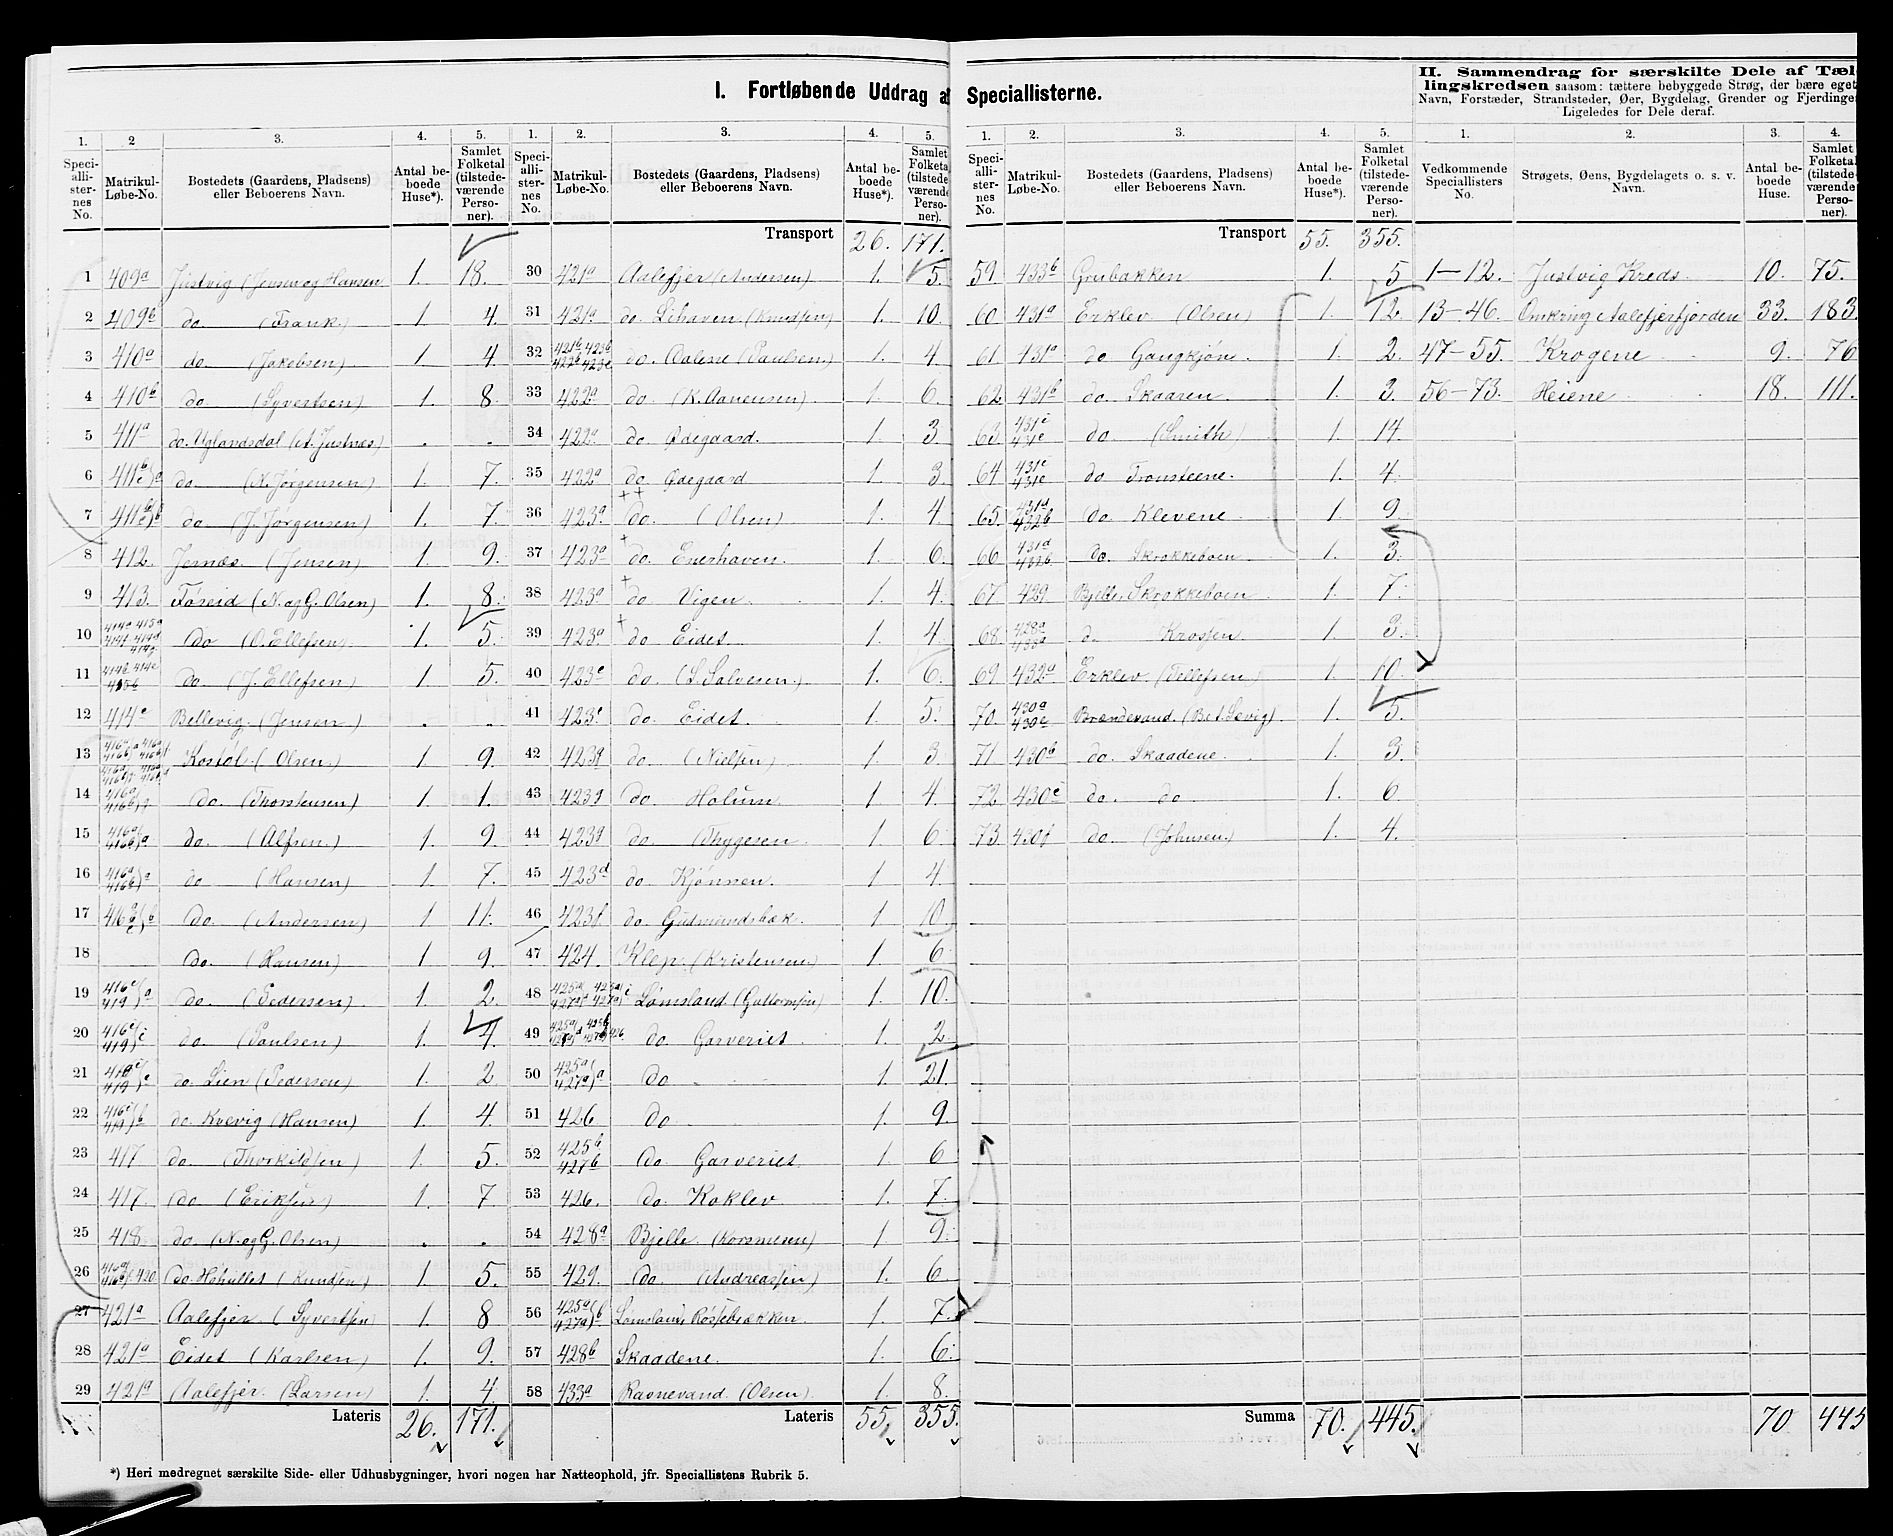 I. Fortløbende Uddrag af Speciallisterne.
II. Sammendrag for særskilte Dele af Tæl-
lingskredsen saasom: tættere bebyggede Strøg, der bære eget
Navn, Forstæder, Strandsteder, Øer, Bygdelag, Grender og Fjerdinger
Ligeledes for Dele deraf.
1. 2 3. 4. 5. 1. 2. 3. 4. 5.
Speciallisternes No. Matrikul-Løbe-No. Bostedets (Gaardens, Pladsens) eller Beboerens Navn. Antal beboede Huse*). Samlet Folketal (tilstedeværende Personer).
Transport 26. 171.
1 409a Justvig (Jensen og Hansen 1. 18.
2 409b do. (Frank.) 1 4.
3 410a do (Jakobsen) 1. 4
4 410b do (Syvertsen) 1. 8.
5 411a do. Uglandsdal (A. Justnæs) . .
6 do (N. Jørgensen) 1. 7.
7 do (J. Jørgensen) 1. 7.
8 412. Jernæs (Jensen) 1. 9.
9 413. Føreid (N. og G. Olsen) 1. 8.
10 do (O. Ellefsen) 1. 5.
11 do (J. Ellefsen) 1 5.
12 414e Bellevig (Jensen) . .
13 Kostøl (Olsen) 1. 9.
14 do. (Thorstensen) 1 1.
15 do. (Alfsen.) 1 9.
16 do (Hansen) 1. 7.
17 do. (Andersen) 1 11.
18 do. (Hansen) 1 9.
19 do. (Pedersen) 1 2.
20 do. (Paulsen) 1. 4.
21 do. Lien (Pedersen) 1. 2
22 do. Kvevig (Hansen) 1 4.
23 417 do. (Thorkildsen) 1. 5.
24 417. do (Eriksen) 1. 7.
25 418. do. (N. og G. Olsen) . .
26 do. (Knudsen) 1 5.
27 421a Aalefjer (Syvertsen) 1 8
28 421a Eidet (Karlsen) 1. 9.
29 421a Aalefjer. (Larsen) 1. 4.
Lateris 26. 171.
30 421a Aalefjer (Andersen) 1. 5.
31 421a do. Lihaven (Knudsen) 1. 10.
32 421b 423b 422b 423c do. Aalene (Paulsen) 1. 4
33 422a do (K. Aanensen) 1. 6.
34 422a do Ødegaard. 1. 3
35 422a do Ødegaard 1. 3
36 423a do. (Olsen) 1. 4
37 423a do. Enerhaven. 1. 6.
38 423a do Vigen 1. 4.
39 423a do Eidet 1. 4
40 423c do. (S. Salvesen.) 1. 6.
41 do. Eidet. 1. 5.
42 423g do (Nielsen) 1. 3
43 423g do. Holum 1. 4.
44 423g do (Thygesen 1. 6
45 423d do. Kjønnen. 1 4.
46 423f do. Gudmundsbæk. 1 10
47 424. Klep. (Kristensen) 1. 6
48 Lømsland (Guttormsen) 1. 10.
49 do Garveriet 1. 2
50 do 1. 21.
51 426 do 1. 9.
52 425b 427b do Garveriet 1. 6
53 426. do. Koklev 1. 7.
54 428a Bjelle 1. 9.
55 429. do. (Andreassen) 1. 6.
56 Lømsland, Røssebækken 1. 7.
57 428b Skaadene. 1. 6.
58 433a Ravnevand (Olsen) 1. 8.
Lateris 55. 355.
1. 2. 3. 4. 5. 1. 2. 3. 4.
Speciallisternes No. Matrikul-Løbe-No. Bostedets (Gaardens, Pladsens) eller Beboerens Navn. Antal beboede Huse*). Samlet Folketal (tilstedeværende Personer).
Vedkommende Speciallisters No. Strøgets, Øens, Bygdelagets o. s. v. Navn. Antal beboede Huse. Samlet Folketal (tilstedeværende Personer).
Transport 55. 355.
59. 433b Grubakken 1. 5 1-12. Justvig Kreds. 10. 75.
60 431a Erklev (Olsen) 1. 12. 13-46. Omkring Aalefjerfjorden 33. 183.
61 431a do Gangkjøn. 1. 2. 47-55. Krogene 9. 76
62 431b do. Skaaren 1. 3. 56-73. Heiene 18. 111.
63 do (Smith) 1. 14.
64 do Tronsteene. 1. 4.
65. 431d 432b do. Klevene 1. 9.
66 431d 432b do. Skrokkeboen 1. 3.
67 429 Bjelle, Skrokkeboen 1. 7.
68. Krossen 1. 3.
69 432a Erklev. (Tellefsen) 1. 10.
70. 430a 430c Brændevand. 1. 5.
71. 430b do. Skaadene. 1. 3.
72. do. do 1. 6.
73. 430f do (Johnsen.) 1. 4.
Summa 70. 445. 70 445
*) Heri medregnet særskilte Side- eller Udhusbygninger, hvori nogen har Natteophold, jfr. Speciallistens Rubrik 5.